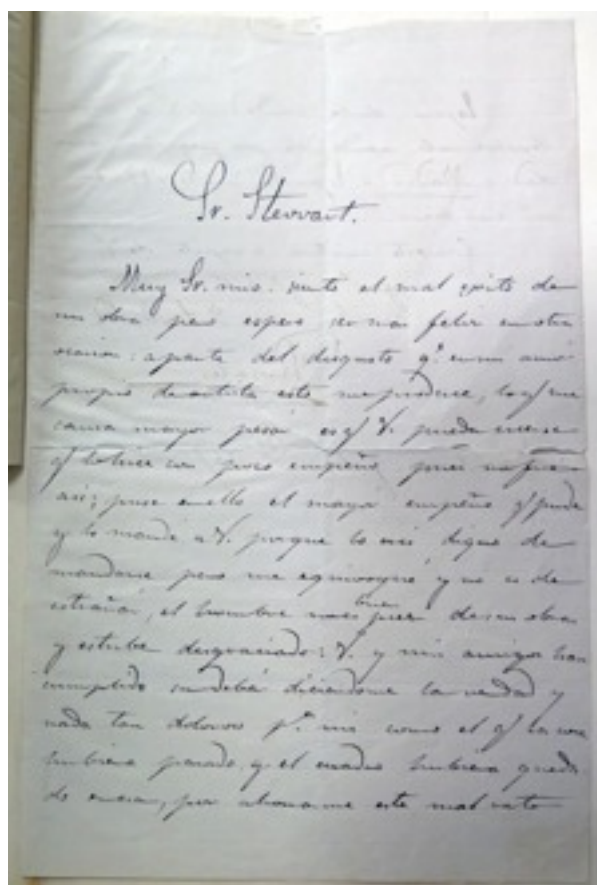 Sr. Stewart.
Muy Sr. mio: siento el mal exito de
mi obra pero espero ser mas feliz en otra
ocasion: aparte del disgusto q.e en mi amor
propio de artista esto me produce, lo q/ me
causa mayor pesar es q/ V. pueda creerse
q/ lo hice con poco empeño pues no fue
asi; puse en ello el mayor empeño q/ pude
y lo mandé a V. porque lo crei digno de
mandarse pero me equivoqué y no es de
estrañar, el hombre no es buen juez de sus obras
y estube desgraciado: V. y mis amigos han
cumplido su deber diciendome la verdad y
nada tan doloroso p.a mi como el q/ la cosa
hubiera pasado y el cuadro hubiera queda-
do en casa, por ahorrarme este mal rato